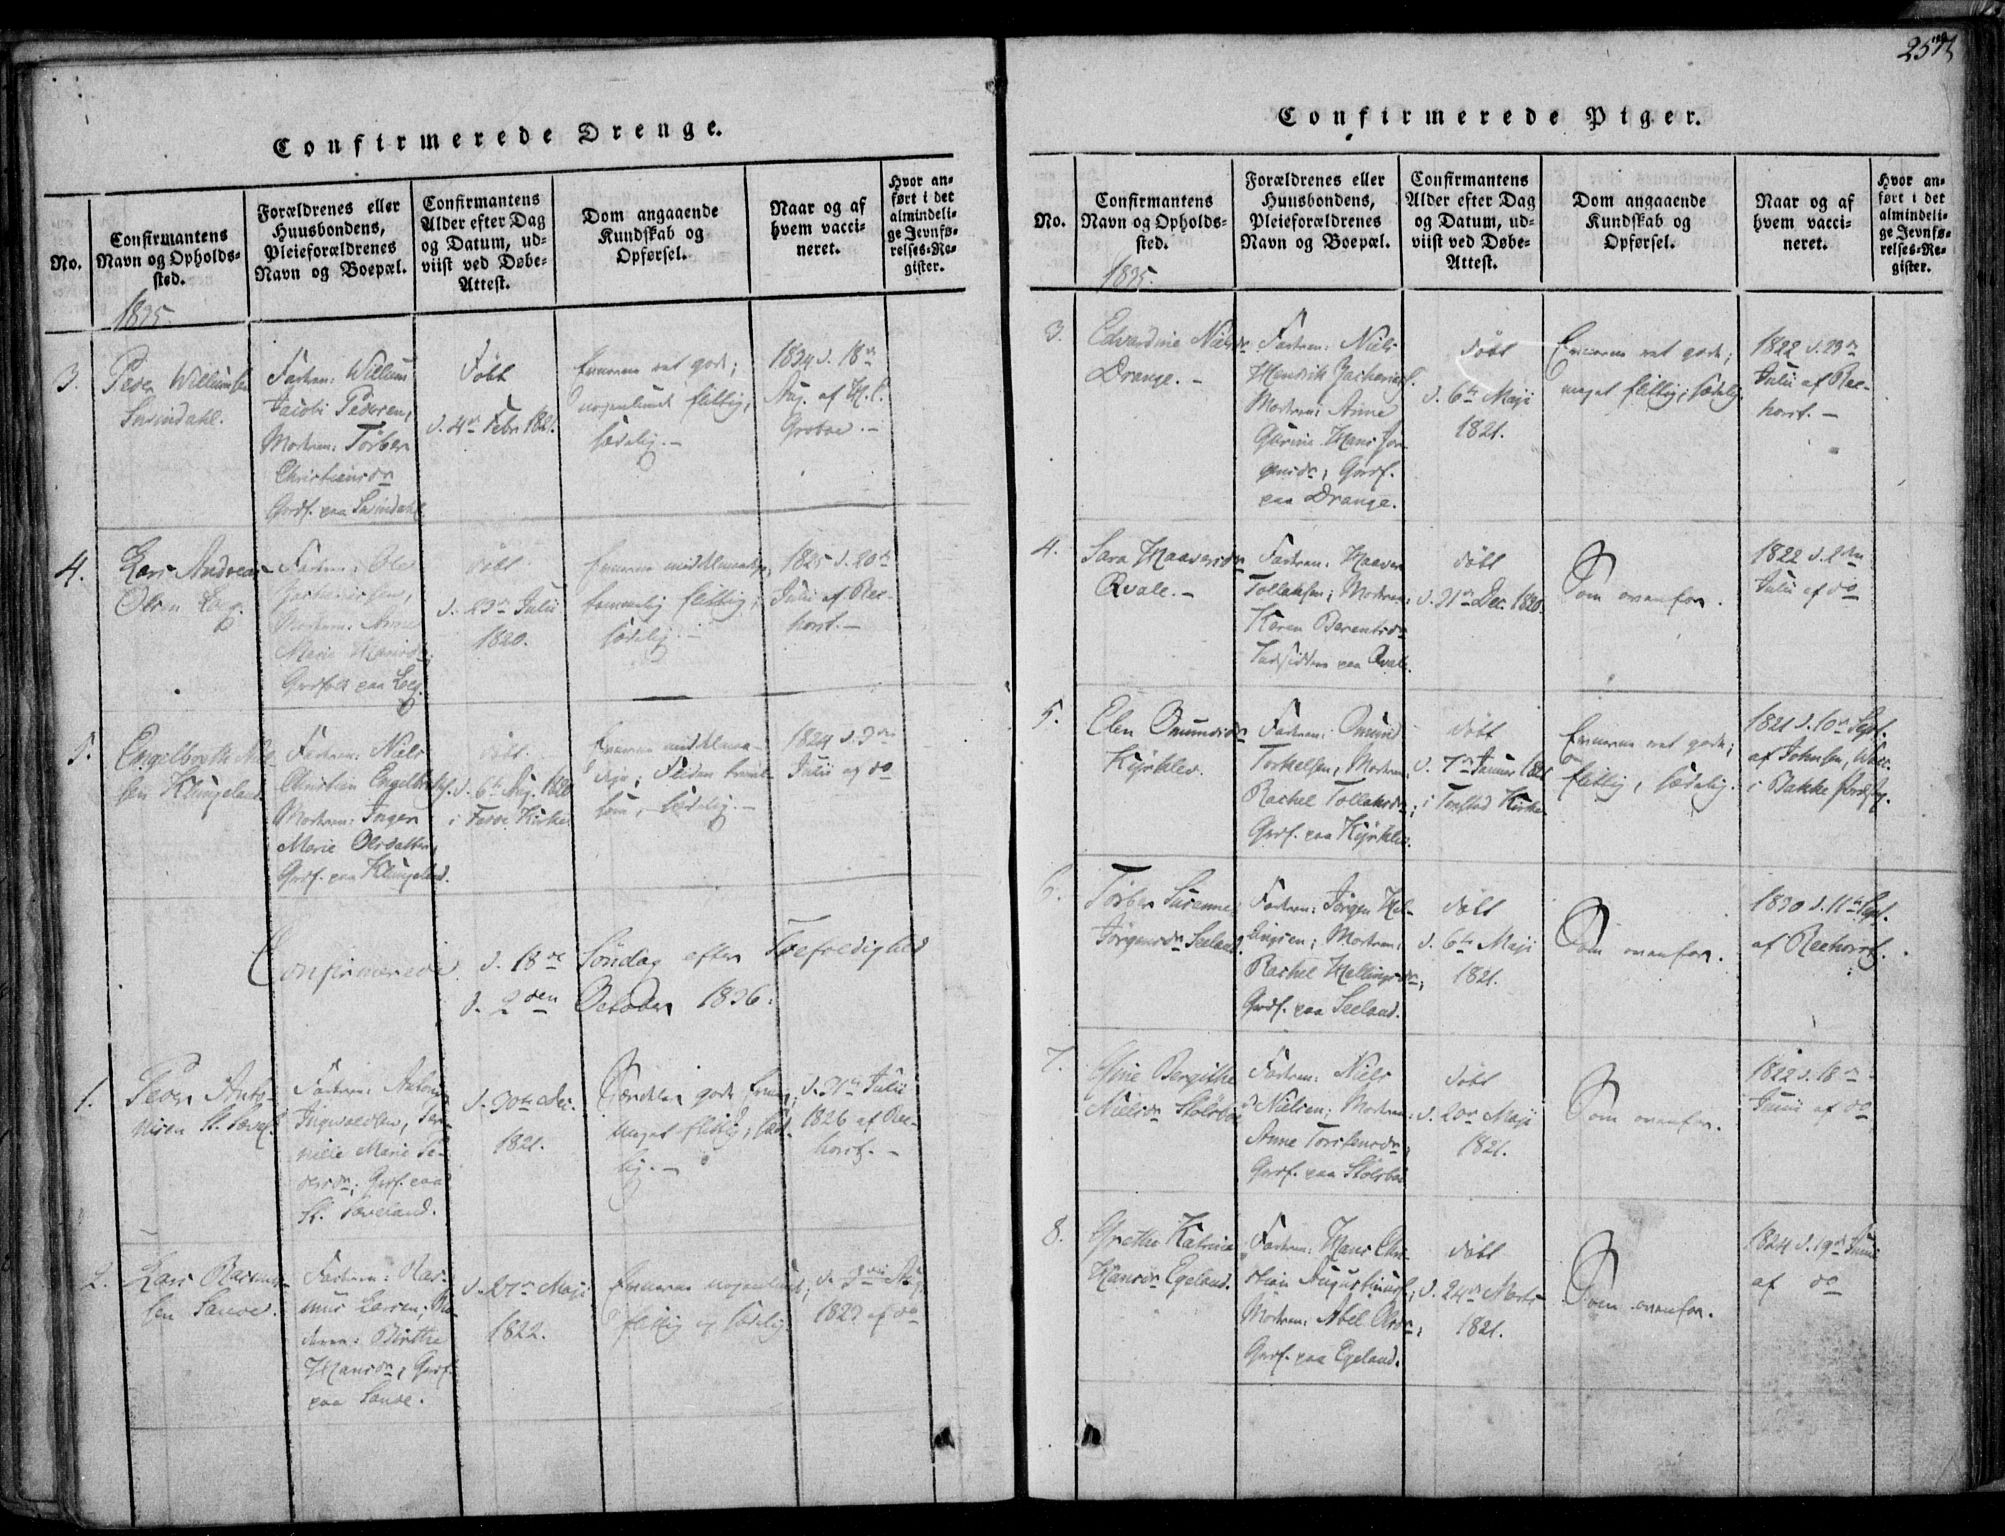 257
Confirmerede Drenge.
No.
Confirmantens
Navn og Opholds-
sted.
Forældrenes eller
Huusbondens,
Pleieforældrenes
Navn og Boepæl.
Confirmantens
Alder efter Dag
og Datum, ud-
viist ved Døbe-
Attest.
Dom angaaende
Kundskab og
Opførsel.
Naar og af
hvem vacci-
neret.
Hvor an-
ført i det
almindeli-
ge Jevnfø-
relses-Re-
gister.
1835.
3.
Peder Willumsen
Fadren: Willum
Jacobi Pedersen,
Modren: Torber
Christiansdr
Grdf. paa
Døbt
d. 4de Febr. 1821.
Evnerne ret gode;
nogenlunde flittig;
sædelig.-
1834 d. 18de
Aug. af H. C.
Groboe.-
4.
Lars Andreas
Olsen Leeg.
Fadren: Ole
Zachariasen,
Modren: Anne
Marie Hansdr,
Grdfolk paa Leeg.
døbt
d. 23de Julii
1820.
Evnerne middelmaadige;
temmelig flittig;
sædelig.-
1825 d. 20de
Julii af Ree-
horst.-
5.
Engelbreth Niel-
sen Klungeland
Fadren: Niels
Christian Engelbrethsen,
Modren: Inger
Marie Olsdatter,
Grdf. paa Klungeland.
døbt
d. 6te Aug. 1820
i Fede Kirke
Evnerne middelmaa-
dige; Fliden
sædelig.-
1824 d. 3die
Julii af do
Confirmerede d. 18de Søndag efter Trefoldighed
d. 2den October 1836:
1.
Peder Anto-
nisen St.
Fadren: Anton
Ingvaldsen, Per-
nille Marie Pe-
dersdr; Grdf. paa
St.
d. 30te Dec.
1821.
Særdeles gode Evner,
meget flittig, sæde-
lig.-
d. 31te Julii
1826 af Ree-
horst.-
2.
Lars Rasmus-
sen Sande.
Fadren: Ras-
mus Larsen; Mo-
dren: Birthe
Hansdr, Grdf.
paa Sande.
d. 27de Maji
1822.
Evnerne nogenlunde;
flittig og sædelig.
d. 3die Aug.
1823 af do
Confirmerede Piger.
No.
Confirmantens
Navn og Opholds-
sted.
Forældrenes eller
Huusbondens,
Pleieforældrenes
Navn og Boepæl.
Confirmantens
Alder efter Dag
og Datum, ud-
viist ved Døbe-
Attest.
Dom angaaende
Kundskab og
Opførsel.
Naar og af
hvem vacci-
neret.
Hvor an-
ført i det
almindeli-
ge Jevnfø-
relses-Re-
gister.
1835.
3.
Edvardine Nielsdr
Drange.-
Fadren: Niels
Hendrik Zachariasf.
Modren: Anne
Gurine Hans Jør-
gensdr, Grdf.
paa Drange.
døbt
d. 6te Maji
1821.
Evnerne ret gode;
meget flittig; sædelig.
1822 d. 23de
Julii af Ree-
horst.-
4.
Sara Haaversdr
Qvale.-
Fadren: Haaver
Tollaksen; Modren:
Karen Berentsdr
Indsiddere paa Qvale.
døbt
d. 31te Dec. 1820.
Som ovenfor.
1822 d. 2den
Julii af do
5.
Elen Omundsdr
Kyrklev.
Fadren: Omund
Torkelsen, Modren:
Rachel Tollaksdr,
Grdf. paa Kyrklev.
døbt
d. 7de Januar 1821
i Tonstad Kirke.
Evnerne ret gode;
flittig, sædelig.
1821 d. 10de Sept.
af Johnsen, Vacc.
i Bakke Præstegj.
6.
Torber Susanne
Jørgensdr Seeland.
Fadren: Jørgen Hel-
lingsen; Modren:
Rachel Hellingsdr,
Grdf. paa Seeland.
døbt
d. 6te Maji
1821.
Som ovenfor.
1830 d. 11te Sept.
af Reehorst.
7.
Stine Bergithe
Nielsdr Stolsboe
Fadren: Niels
Nielsen; Modren:
Anne Torstensdr,
Grdf. paa Stolsboe
døbt
d. 20de Maji
1821.
Som ovenfor.
1822 d. 18de
Junii af do
8.
Grethe Katrine
Hansdr Egeland.
Fadren: Hans Chri-
stian Augustinusf.,
Modren: Abel Olsdr,
Grdf. paa Egeland.
døbt
d. 24de Marts
1821.
Som ovenfor.
1824 d. 19de Junii
af do